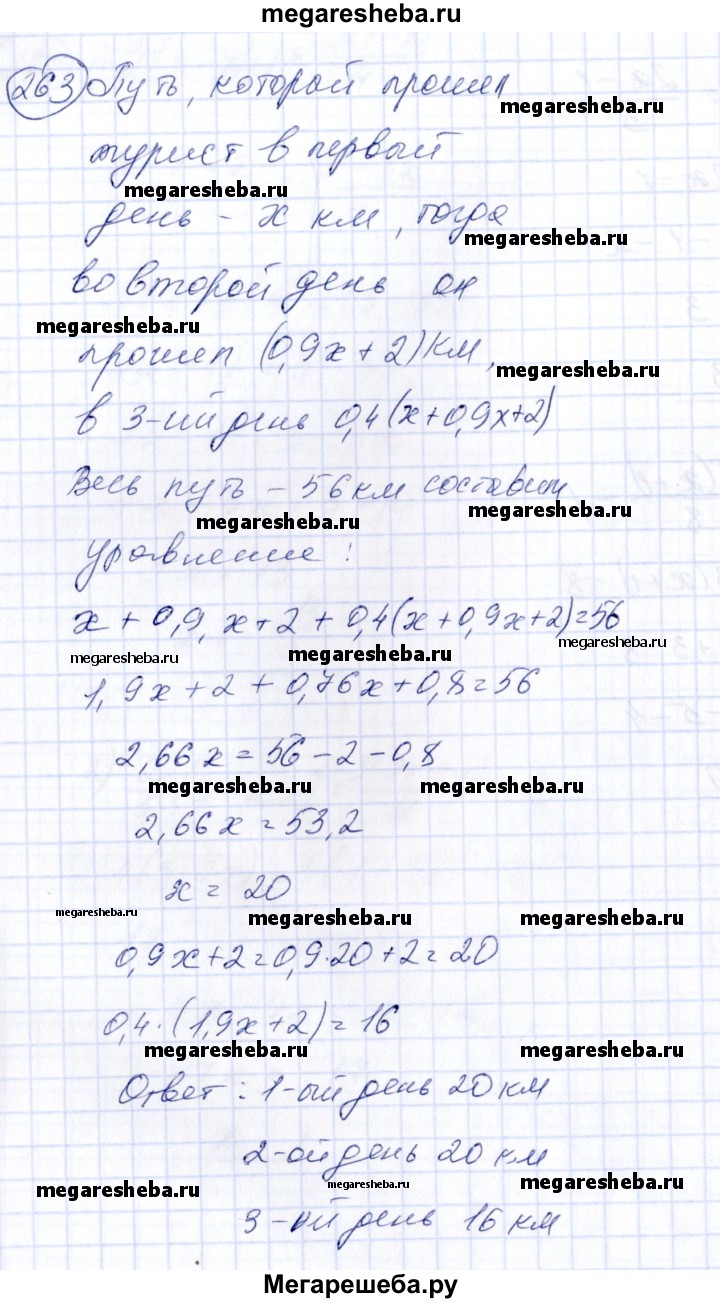 megaresheba.ru
263 Путь, которой прошел
megaresheba.ru
турист в первый
megaresheba.ru
день - x км, тогда
megaresheba.ru
во второй день он
megaresheba.ru
прошел (0,9x+2) км,
megaresheba.ru
в 3-ий день 0,4(x+0,9x+2)
Весь путь - 56 км составим
megaresheba.ru
megaresheba.ru
уравнение:
x + 0,9, x+2 + 0,4(x+0,9x+2)=56
megaresheba.ru
megaresheba.ru
megaresheba.ru
1,9x+2+0,76x+0,8=56
2,66x=56-2-0,8
megaresheba.ru
megaresheba.ru
2,66x=53,2
x= 20
megaresheba.ru
megaresheba.ru
megaresheba.ru
0,9x+2=0,9·20+2=20
0,4·(1,9x+2)=16
megaresheba.ru
megaresheba.ru
Ответ: 1-ый день 20 км
2-ой день 20 км
megaresheba.ru
megaresheba.ru
megaresheba.ru
3-ий день 16 км
Мегарешеба.ру